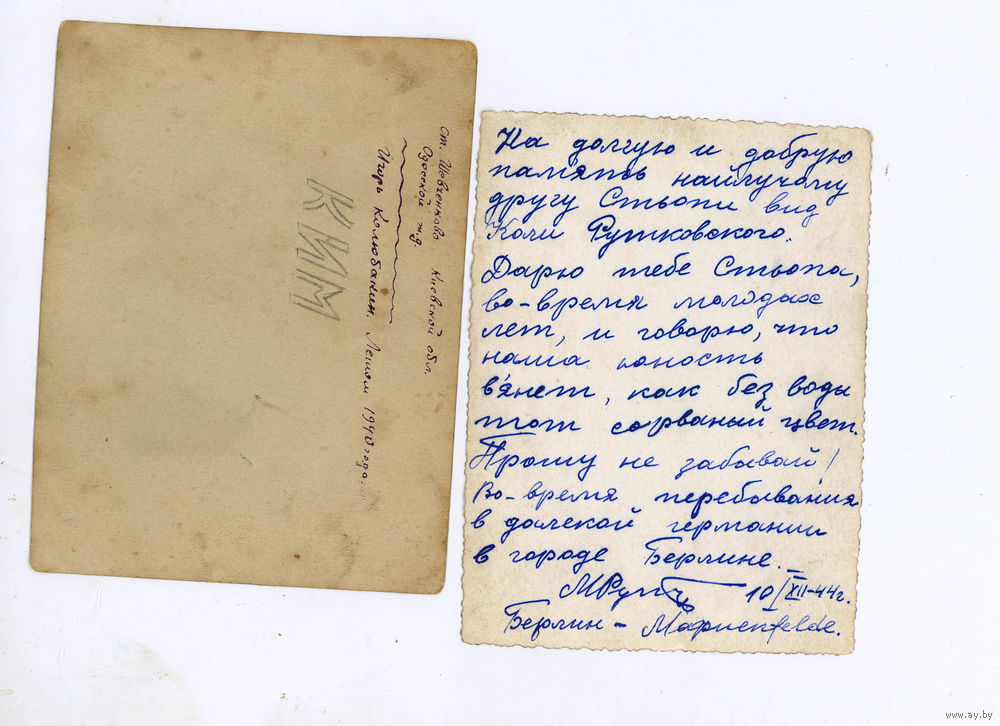 ст. Шевченково Киевской обл.
Одесской ж.д.
Игорь Колюбакин. Летом 1940 года.
КИМ
На долгую и добрую
память найлучому
другу Стьопи вид
Коли Рутковского.
Дарю тебе Стьопа,
во-время молодах
лет, и говорю, что
наша юность
в'янет, как без воды
тот сорваный цвет.
Прошу не забывай!
Во-время перебывания
в далекой германии
в городе Берлине.
10/XII-44г.
Берлин - Мариenfelde.
www.ay.by